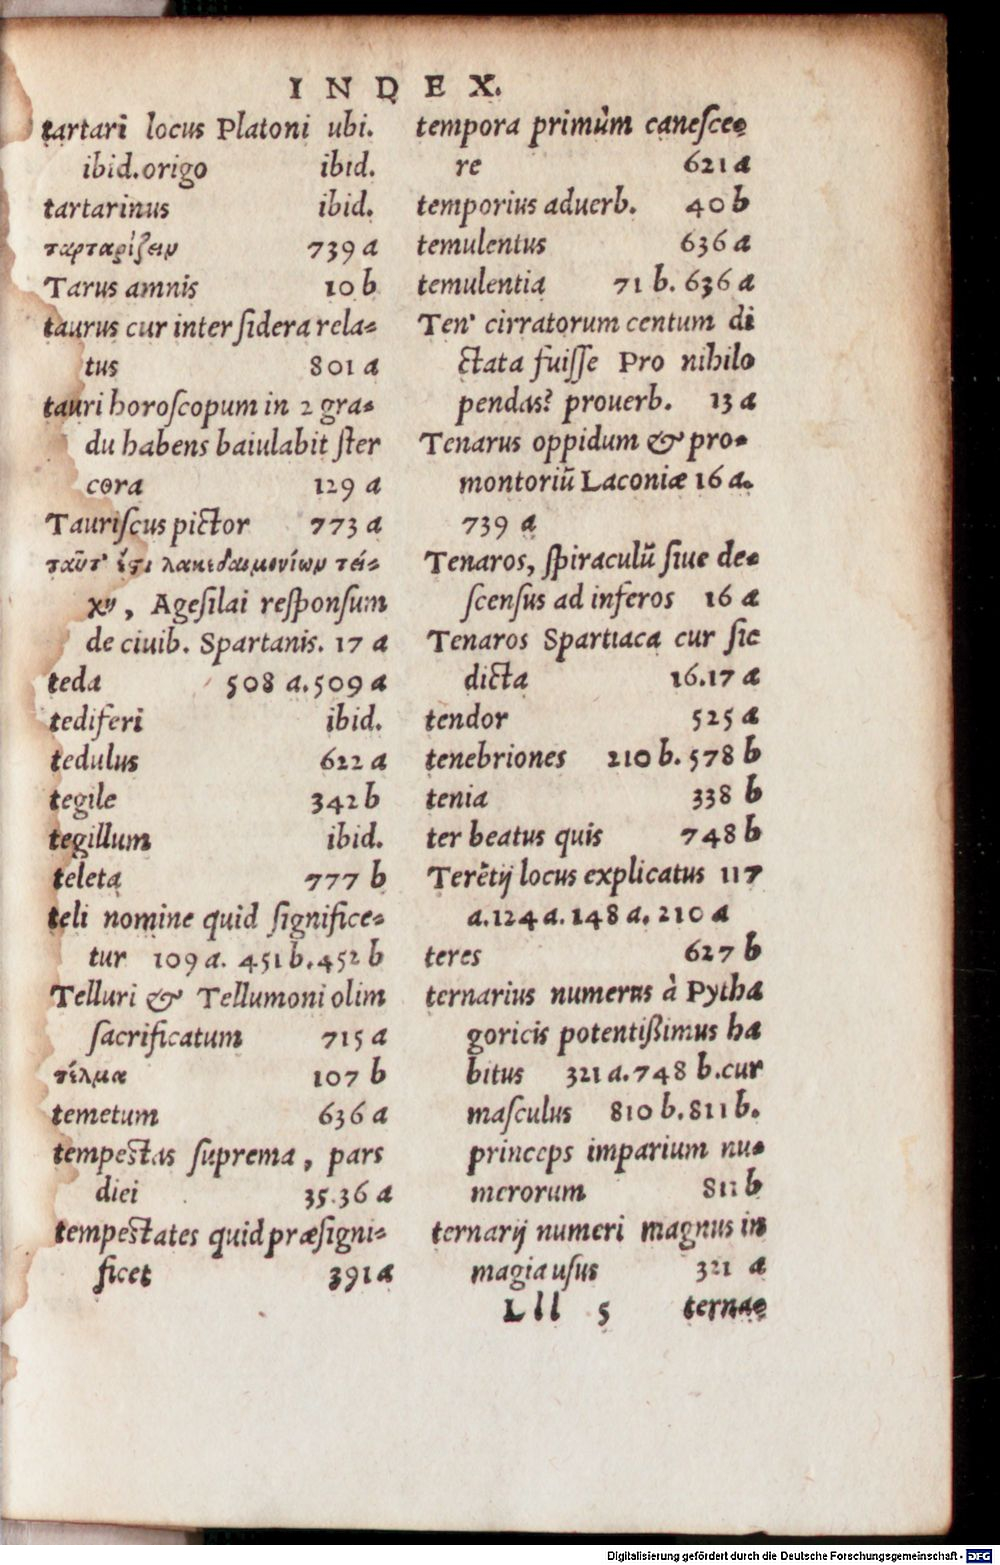 INDEX.
tartari locus Platoni ubi.
ibid. origo ibid.
tartarinus ibid.
ταρταρίζειν 739 a
Tarus amnis 10 b
taurus cur inter ſidera rela-
tus 801 a
tauri horoſcopum in 2 gra-
du habens baiulabit ſter
cora 129 a
Tauriſcus pictor 773 a
ταῦτ' ἔστι λακεδαιμονίων τεί-
χη, Ageſilai reſponſum
de ciuib. Spartanis. 17 a
teda 508 a. 509 a
tediferi ibid.
tedulus 622 a
tegile 342 b
tegillum ibid.
teleta 777 b
teli nomine quid ſignifice-
tur 109 a. 451 b. 452 b
Telluri & Tellumoni olim
ſacrificatum 715 a
τέλμα 107 b
temetum 636 a
tempeſtas ſuprema, pars
diei 35. 36 a
tempeſtates quid præſigni-
ficet 391 a
tempora primùm caneſce-
re 621 a
temporius aduerb. 40 b
temulentus 636 a
temulentia 71 b. 636 a
Ten' cirratorum centum di
ctata fuiſſe Pro nihilo
pendas? prouerb. 13 a
Tenarus oppidum & pro-
montoriũ Laconiæ 16 a.
739 a
Tenaros, ſpiraculũ ſiue de-
ſcenſus ad inferos 16 a
Tenaros Spartiaca cur ſic
dicta 16. 17 a
tendor 525 a
tenebriones 210 b. 578 b
tenia 338 b
ter beatus quis 748 b
Terẽtij locus explicatus 117
a. 124 a. 148 a. 210 a
teres 627 b
ternarius numerus à Pytha
goricis potentißimus ha
bitus 321 a. 748 b. cur
maſculus 810 b. 811 b.
princeps imparium nu-
merorum 811 b
ternarij numeri magnus in
magia uſus 321 a
Lll 5 ternæ
Digitalisierung gefördert durch die Deutsche Forschungsgemeinschaft - DFG